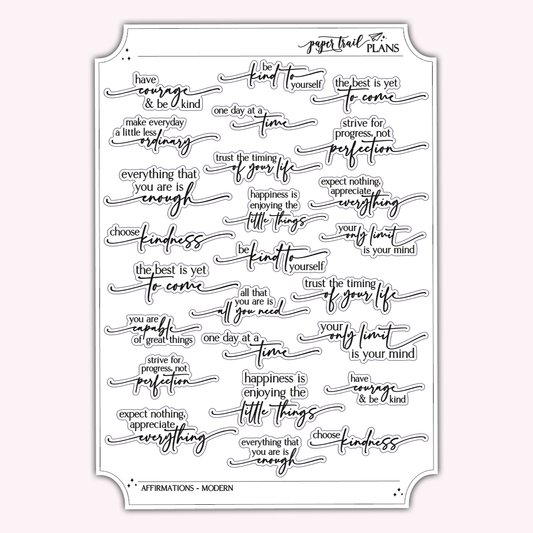 paper trail PLANS
have
courage
& be kind
be
kind to
yourself
the best is yet
to come
make everyday
a little less
ordinary
one day at a
time
strive for
progress, not
perfection
trust the timing
of your life
everything that
you are is
enough
happiness is
enjoying the
little things
expect nothing,
appreciate
everything
choose
kindness
your
only limit
is your mind
be
kind to
yourself
the best is yet
to come
all that
you are is
all you need
trust the timing
of your life
you are
capable
of great things
one day at a
time
your
only limit
is your mind
strive for
progress, not
perfection
happiness is
enjoying the
little things
have
courage
& be kind
expect nothing,
appreciate
everything
everything that
you are is
enough
choose
kindness
AFFIRMATIONS - MODERN